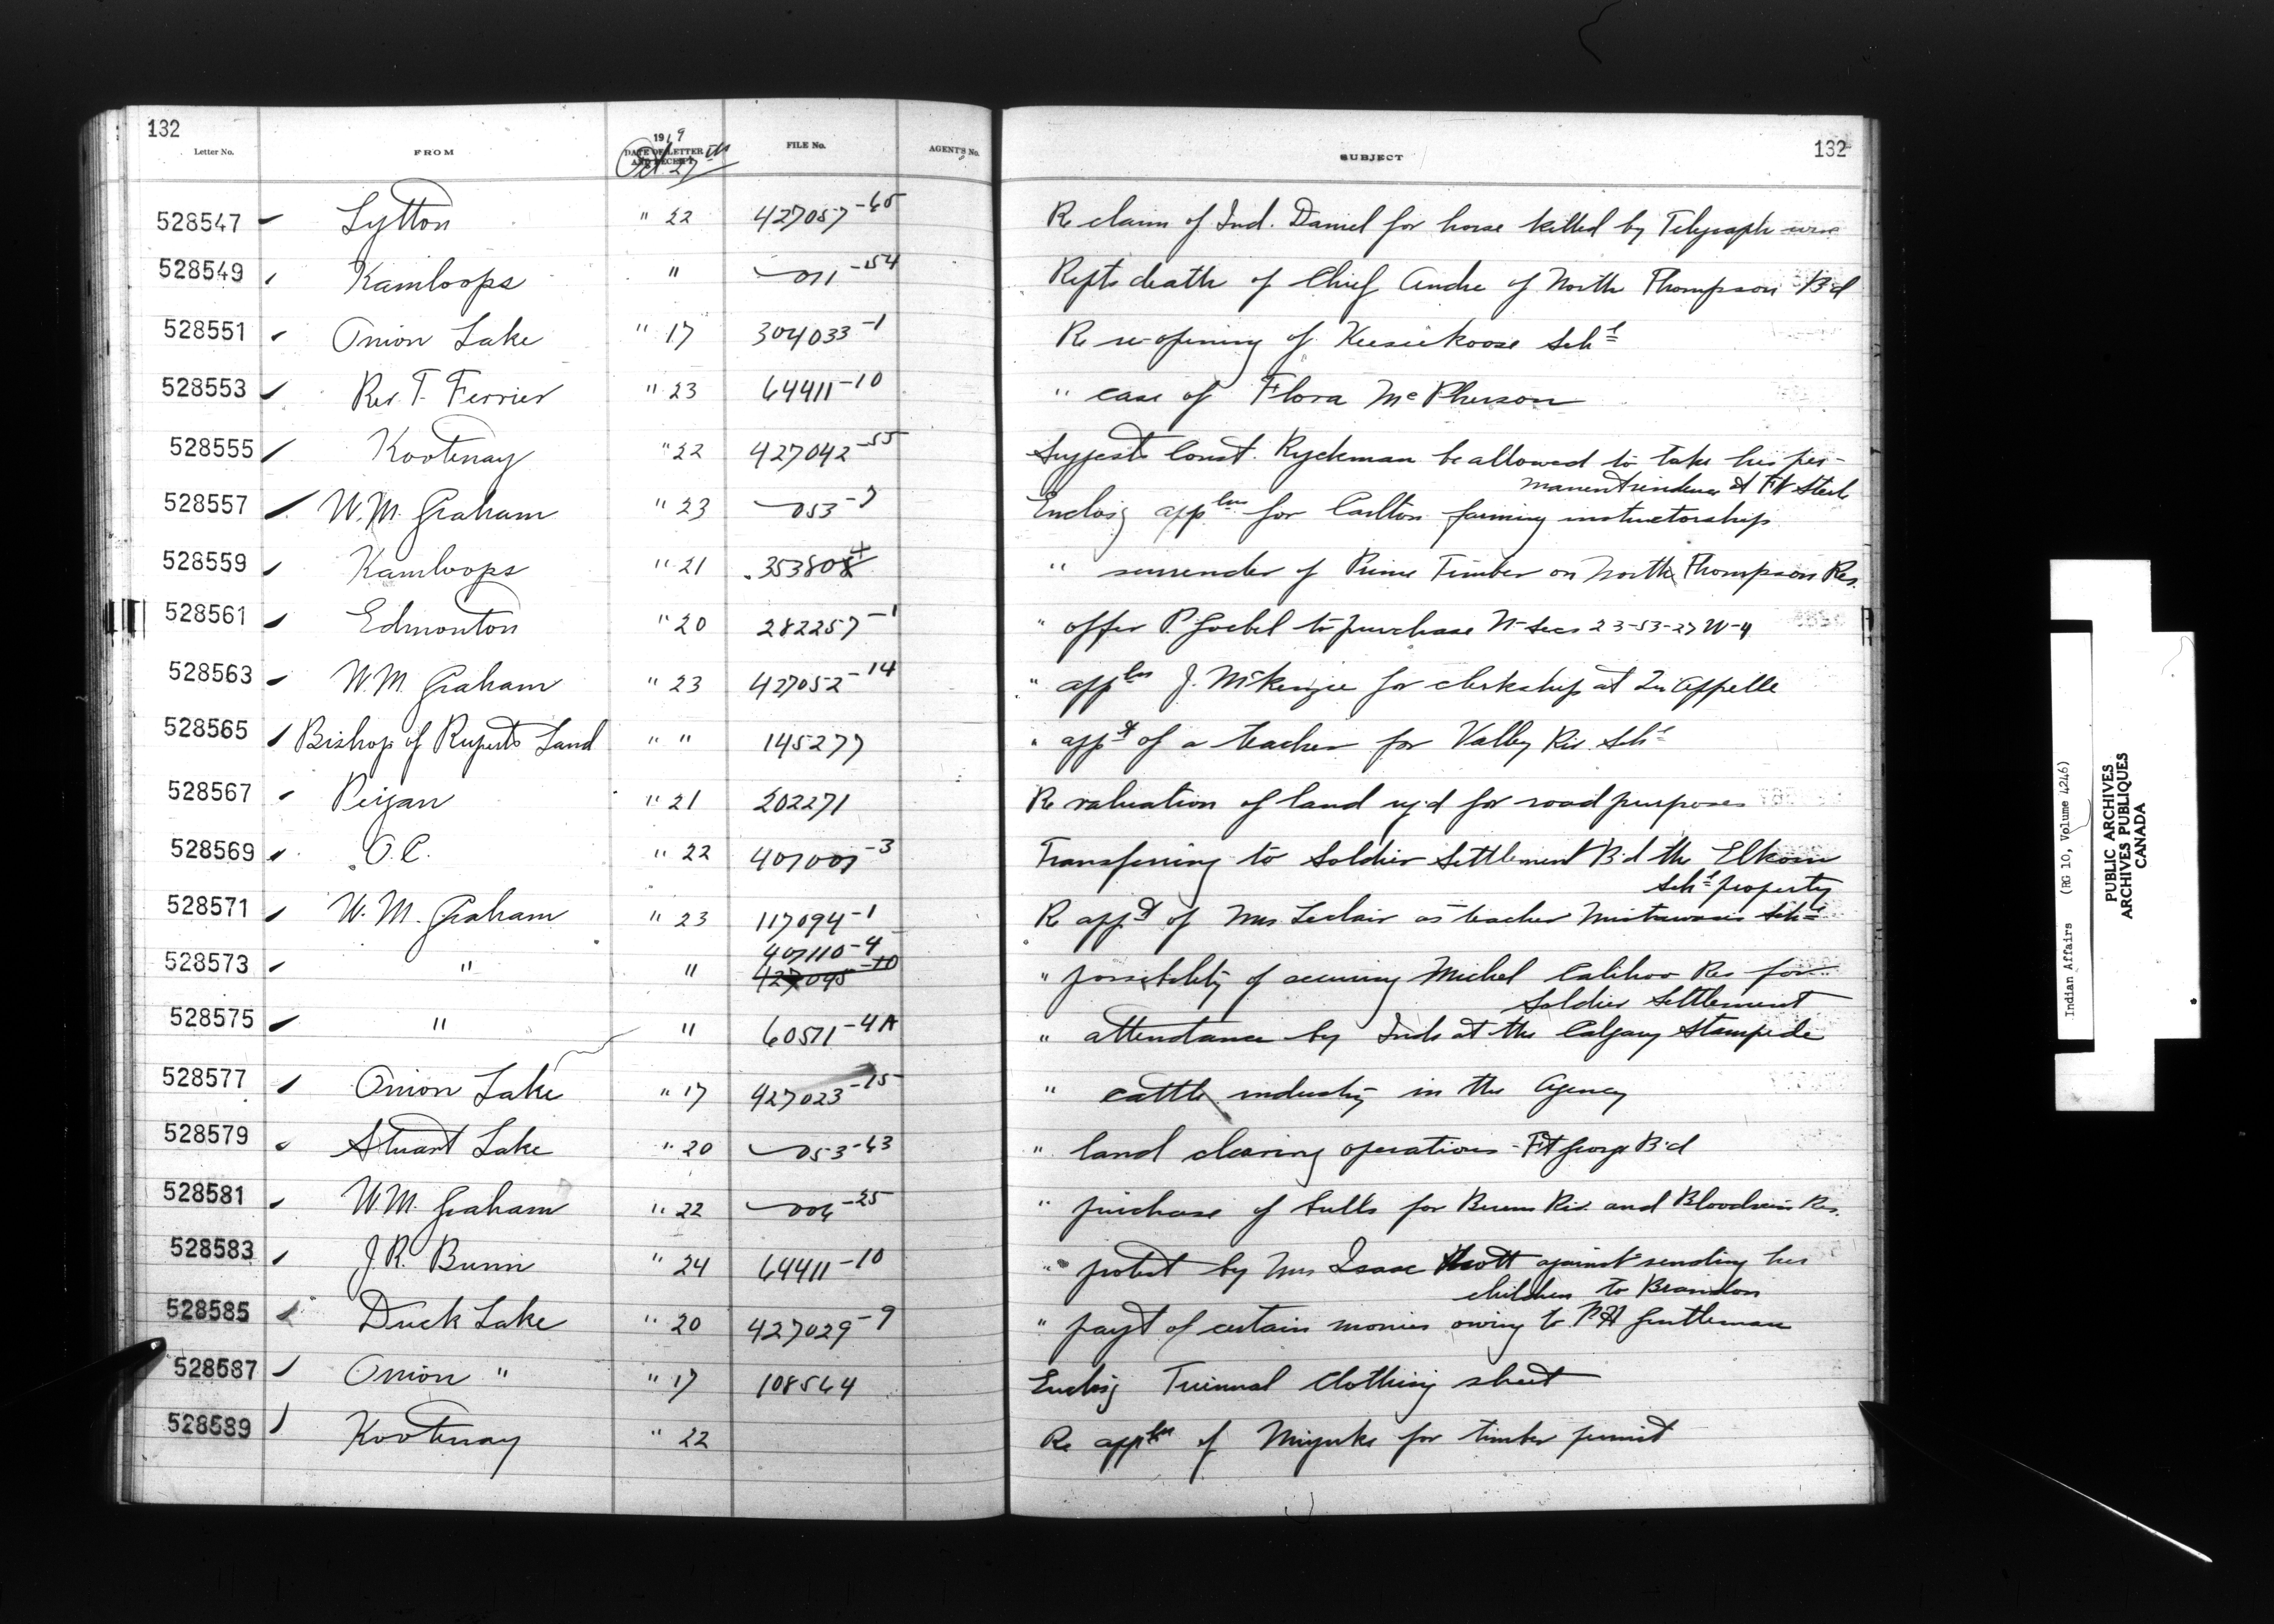 132
Letter No. FROM 1919 DATE OF LETTER AND RECEIPT FILE No. AGENT'S No. SUBJECT 132
Oct 27th
528547 Lytton " 22 427057-65 Re claim of Ind. Daniel for horse killed by Telegraph wire
528549 Kamloops " 011-54 Repts death of Chief Andre of North Thompson B'd
528551 Onion Lake " 17 304033-1 Re re-opening of Keeseekoose Schl
528553 Rev. T. Ferrier " 23 64411-10 " case of Flora McPherson
528555 Kootenay " 22 427042-55 Suggests Const. Ryckman be allowed to take his per-
manent residence at Ft Steele
528557 W. M. Graham " 23 053-7 Enclosg appln for Carlton farming instructorship
528559 Kamloops " 21 353808 " surrender of Prime Timber on North Thompson Res.
528561 Edmonton " 20 282257-1 " offer P. Goebel to purchase N-Secs 23-53-27 W-4
528563 W. M. Graham " 23 427052-14 " appln J. McKenzie for clerkship at Qu'Appelle
528565 Bishop of Ruperts Land " " 145277 " appt of a teacher for Valley Riv. Schl
528567 Peigan " 21 202271 Re valuation of land rq'd for road purposes
528569 O.C. " 22 407007-3 Transferring to Soldier Settlement B'd the Elkhorn
Schl property
528571 W. M. Graham " 23 117094-1 Re appt of Mrs Leclair as teacher Mistawasis Schl
407110-4
528573 " " 427095-10 " possibility of securing Michel Calihoo Res for
Soldier Settlement
528575 " " 60511-4A " attendance by Inds at the Calgary Stampede
528577 Onion Lake " 17 427023-15 " cattle industry in the Agency
528579 Stuart Lake " 20 053-63 " land clearing operations - Ft George B'd
528581 W. M. Graham " 22 006-25 " purchase of bulls for Berens Riv. and Bloodvein Res.
528583 J. R. Bunn " 24 64411-10 " protest by Mrs Isaac Scott against sending her
children to Brandon
528585 Duck Lake " 20 427029-9 " payt of certain monies owing to P H Gentleman
528587 Onion " " 17 108564 Enclosg Triennial Clothing sheet
528589 Kootenay " 22 Re appln of for timber permit
Indian Affairs (RG 10, Volume 4246)
PUBLIC ARCHIVES
ARCHIVES PUBLIQUES
CANADA